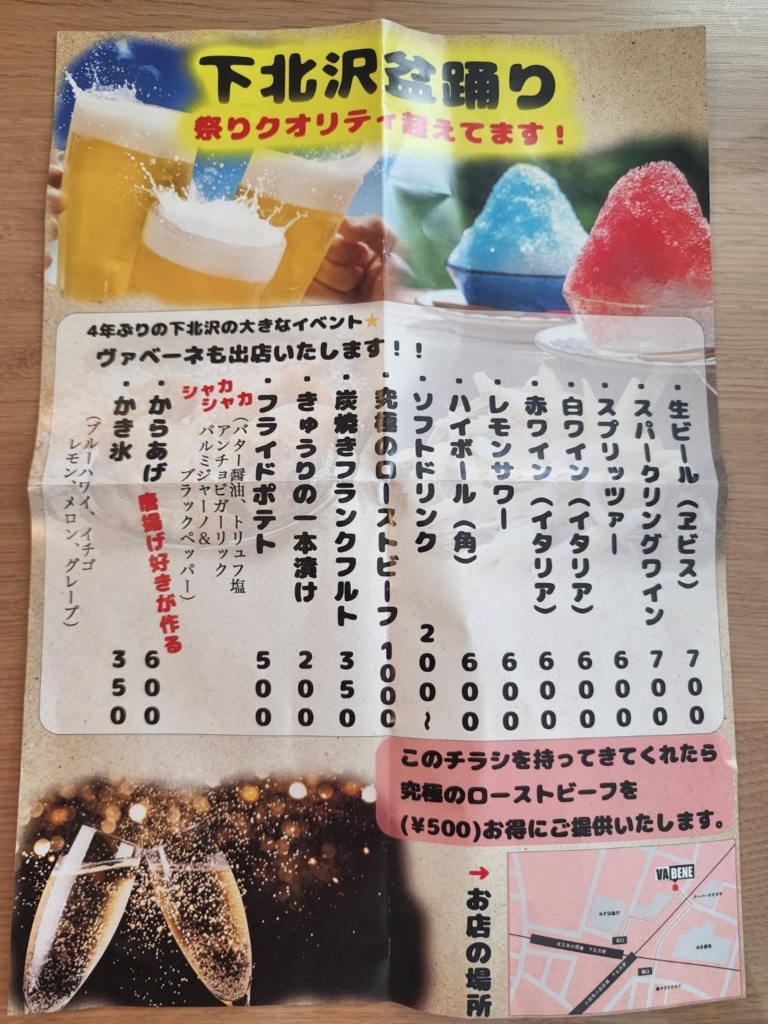 下北沢盆踊り
祭りクオリティ超えてます!
4年ぶりの下北沢の大きなイベント★
ヴァベーネも出店いたします!!
・生ビール(ヱビス) 700
・スパークリングワイン 700
・スプリッツァー 600
・白ワイン(イタリア) 600
・赤ワイン(イタリア) 600
・レモンサワー 600
・ハイボール(角) 600
・ソフトドリンク 200~
・究極のローストビーフ 1000
・炭焼きフランクフルト 350
・きゅうりの一本漬け 200
・フライドポテト 500
シャカ
シャカ
(バター醤油、トリュフ塩
アンチョビガーリック
パルミジャーノ&
ブラックペッパー)
・からあげ 唐揚げ好きが作る 600
・かき氷 350
(ブルーハワイ、イチゴ
レモン、メロン、グレープ)
このチラシを持ってきてくれたら
究極のローストビーフを
(¥500)お得にご提供いたします。
→お店の場所
VA BENE
みずほ銀行
本多劇場
京王井の頭線 下北沢駅
小田急小田原線 下北沢駅